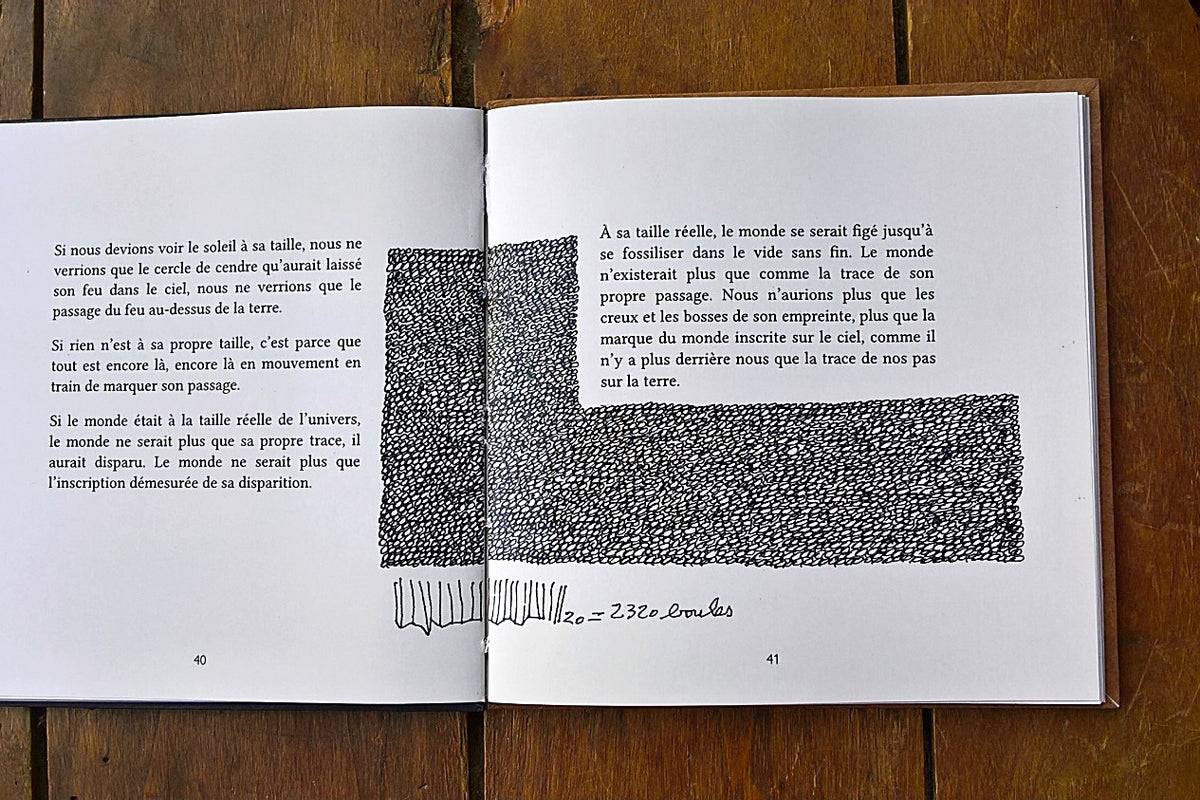 Si nous devions voir le soleil à sa taille, nous ne
verrions que le cercle de cendre qu’aurait laissé
son feu dans le ciel, nous ne verrions que le
passage du feu au-dessus de la terre.
Si rien n’est à sa propre taille, c’est parce que
tout est encore là, encore là en mouvement en
train de marquer son passage.
Si le monde était à la taille réelle de l’univers,
le monde ne serait plus que sa propre trace, il
aurait disparu. Le monde ne serait plus que
l’inscription démesurée de sa disparition.
40
À sa taille réelle, le monde se serait figé jusqu’à
se fossiliser dans le vide sans fin. Le monde
n’existerait plus que comme la trace de son
propre passage. Nous n’aurions plus que les
creux et les bosses de son empreinte, plus que la
marque du monde inscrite sur le ciel, comme il
n’y a plus derrière nous que la trace de nos pas
sur la terre.
20 = 2320 boules
41